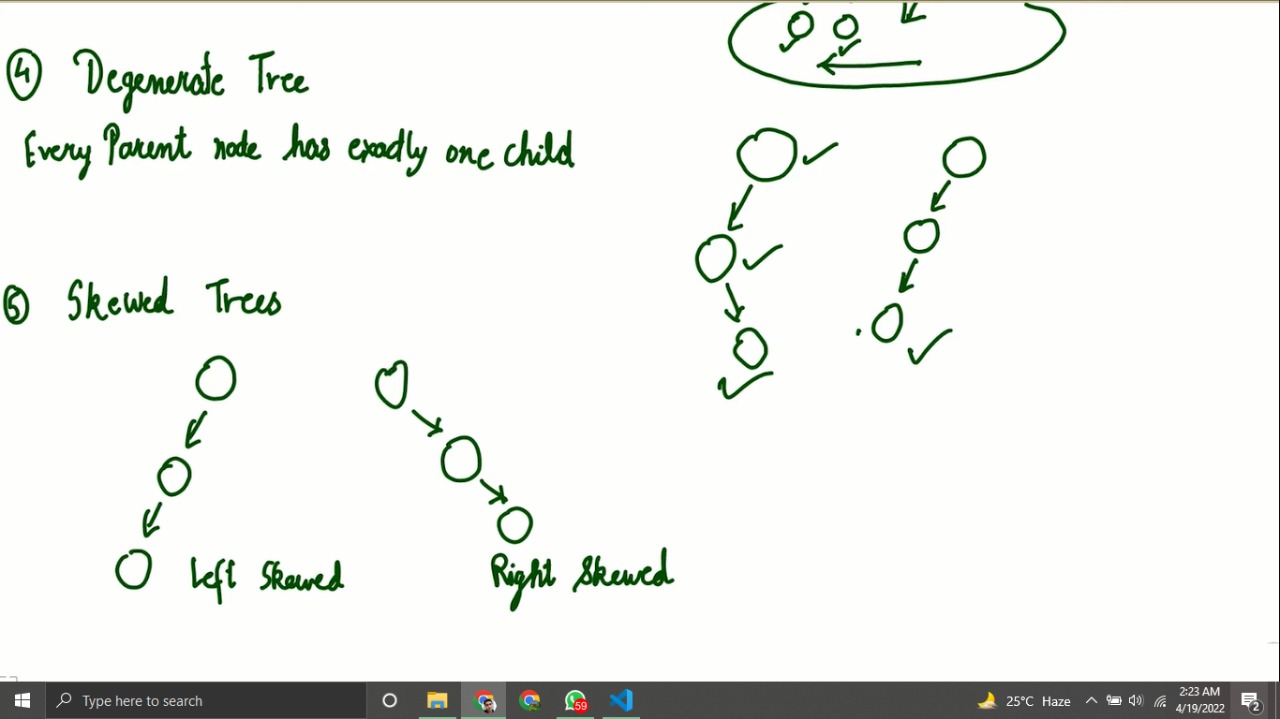 4 Degenerate Tree
Every Parent node has exactly one child
5 Skewed Trees
Left Skewed
Right Skewed
Type here to search
59
25°C Haze
2:23 AM
4/19/2022
2